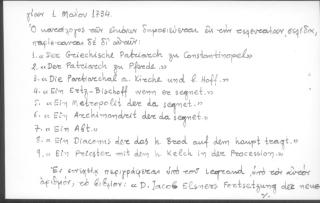 1. Μαΐου 1734.
Ὁ κατάλογος τῶν εἰκόνων δημοσιεύεται ἐν τῇ σελίδι,
δὲ αἱ
1. «Der Griechische Patriarch zu Constantinopel»
2. «Der Patriarch zu Pferde.»
3. «Die Patriarchal. Kirche und l Hoff.»
4. «Ein Ertz-Bischoff wenn er segnet.»
5. «Ein Metropolit der da segnet.»
6. «Ein Archimandrit der da segnet.»
7. «Ein Abt.»
8. «Ein Diaconus der das h. Brod auf dem haupt tragt.»
9. «Ein Priester mit dem h. Kelch in der Procession.»
περιγράφεται ὑπὸ τοῦ Legrand, ὑπὸ τὸν αὐτὸν
ἀριθμὸν, τὸ βιβλίον: «D. Jacob Elsners Fortsetzung der neue